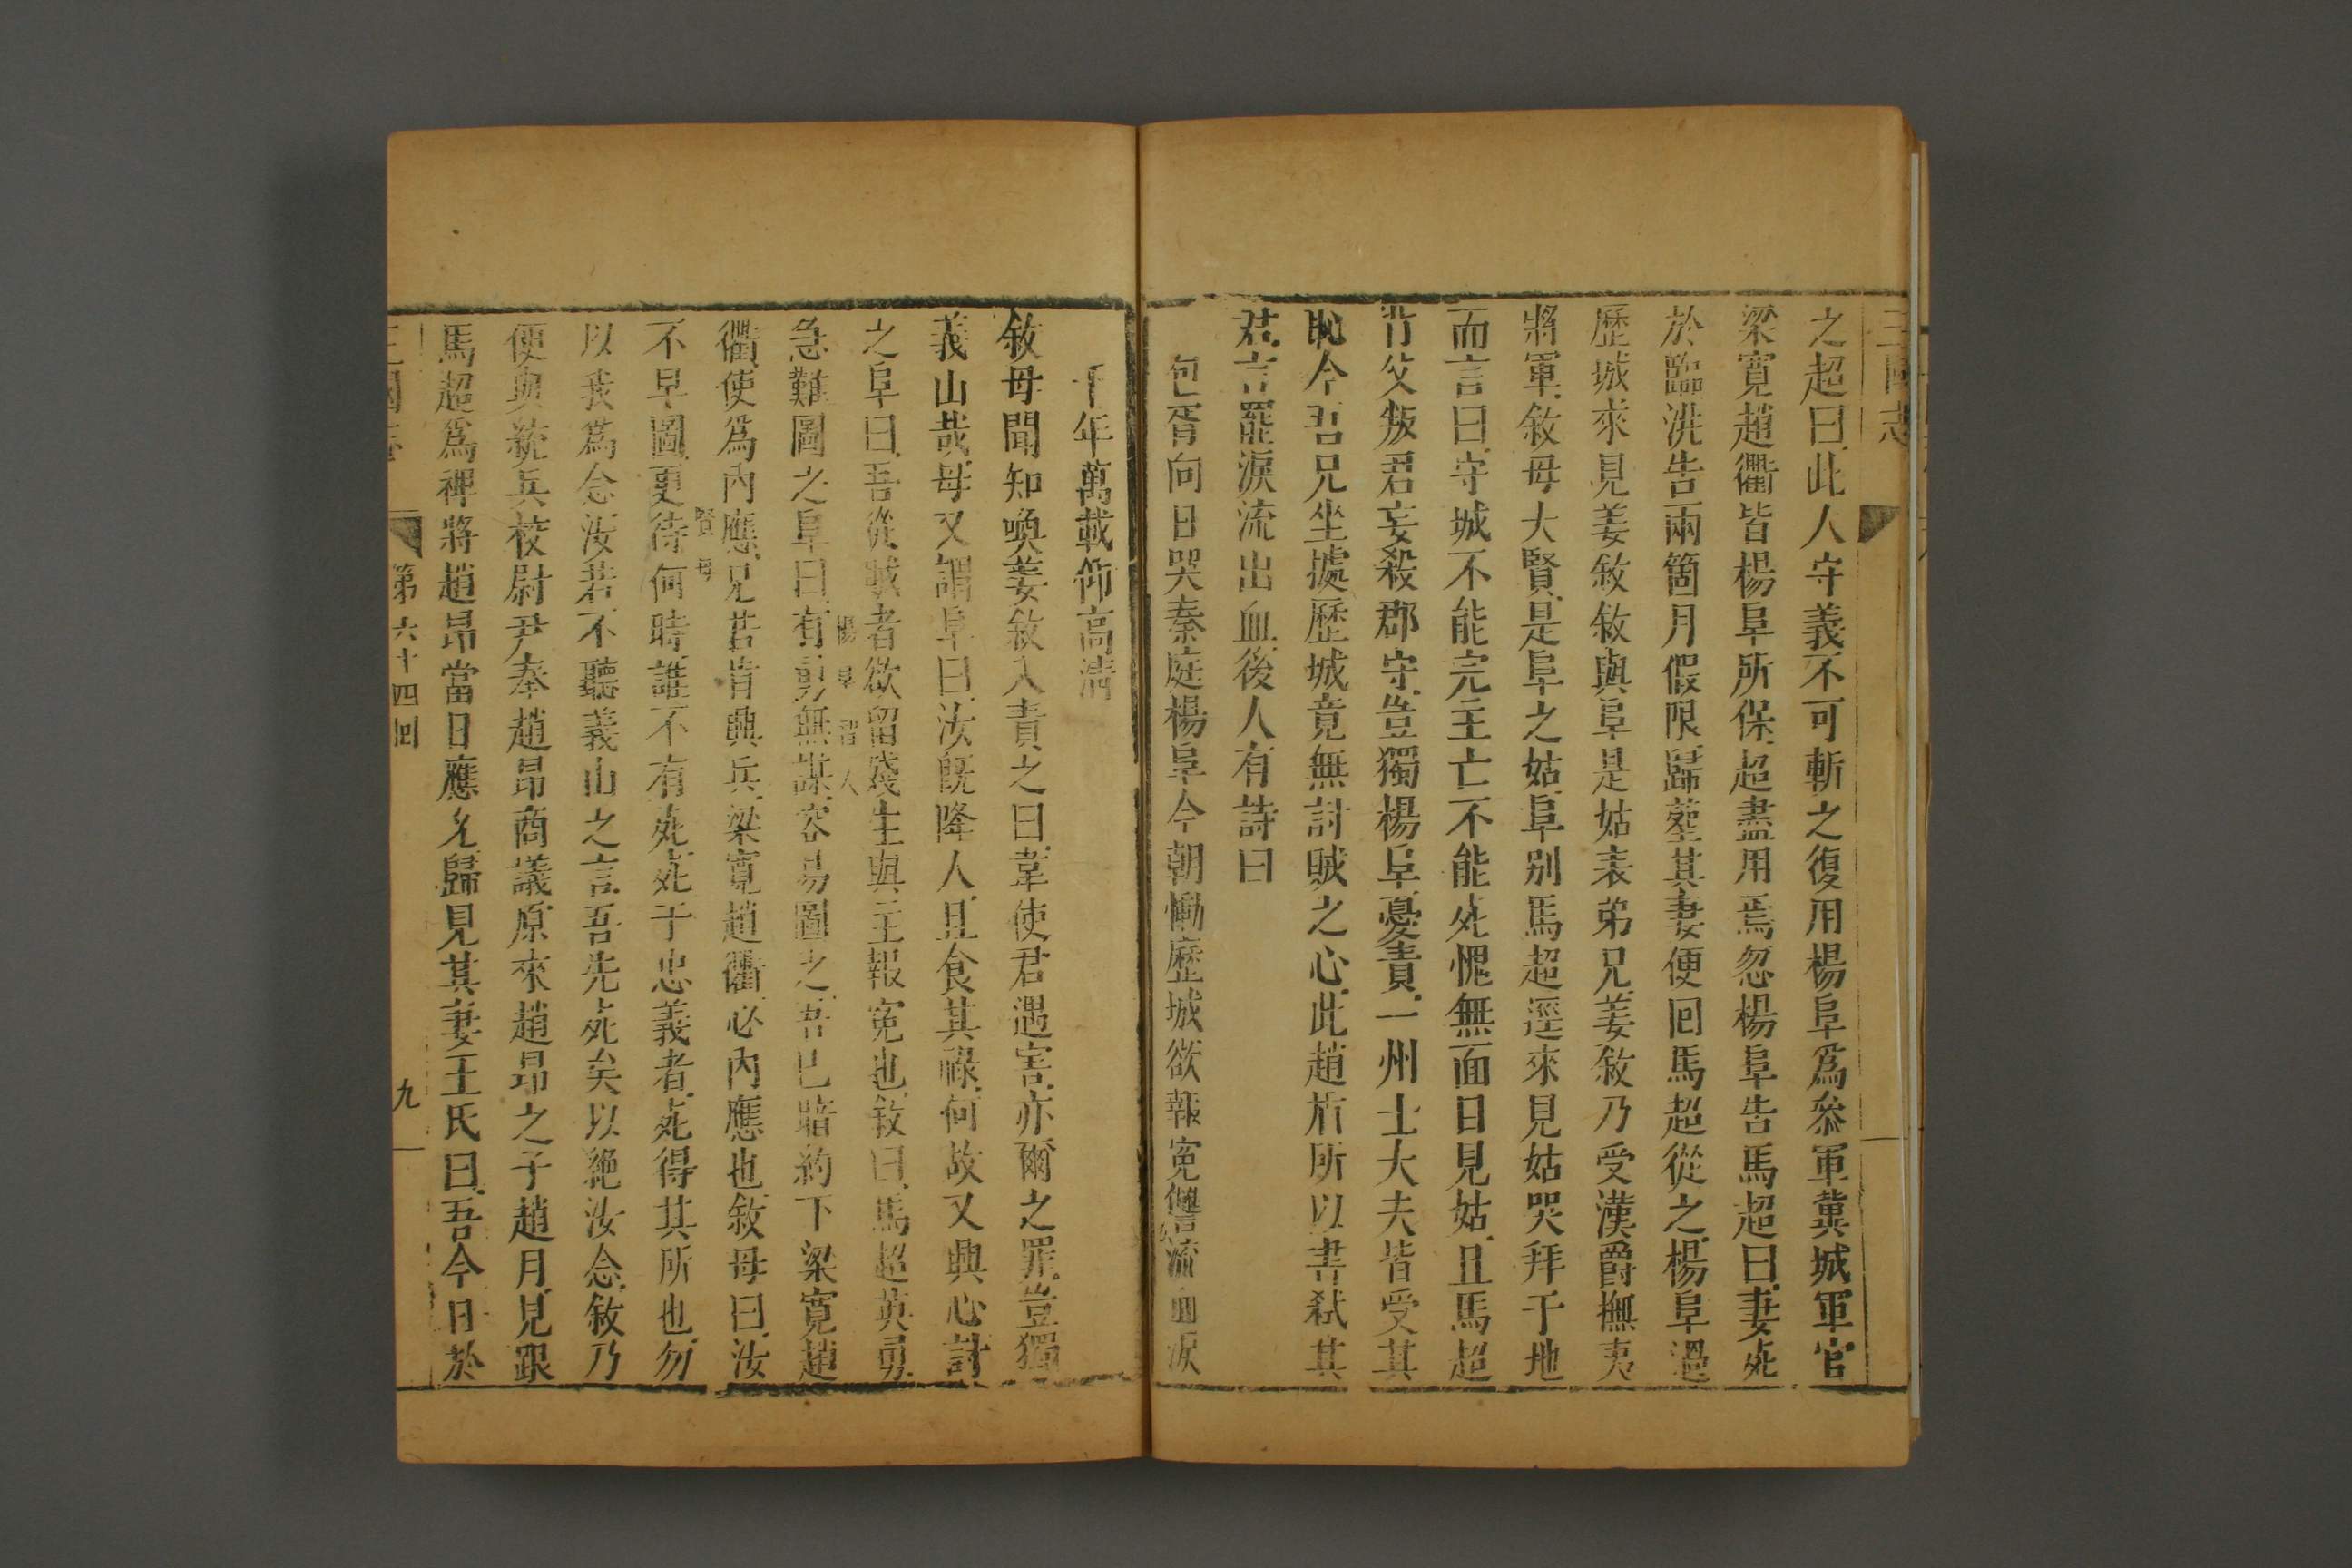 三國志
之超曰此人守義不可斬之復用楊阜爲叅軍冀城軍官
梁寬趙衢皆楊阜所保超盡用焉忽楊阜告馬超曰妻死
於臨洮告兩箇月假限歸塟其妻便回馬超從之楊阜過
歷城來見姜敘敘與阜是姑表弟兄姜敘乃受漢爵撫夷
將軍敘母大賢是阜之姑阜别馬超逕來見姑哭拜于地
而言曰守城不能完主亡不能死愧無面目見姑且馬超
背父叛君妄殺郡守豈獨楊阜憂責一州士大夫皆受其
恥今吾兄坐據歷城竟無討賊之心此趙盾所以書弒其
君言罷淚流出血後人有詩曰
包胥向日哭秦庭楊阜今朝慟歷城欲報寃讐流血淚
千年萬載仰高清
敘母聞知喚姜敘入責之曰韋使君遇害亦爾之罪豈獨
義山哉母又謂阜曰汝既降人且食其祿何故又興心討
之阜曰吾從賊者欲留殘生與主報寃也敘曰馬超英勇
楊阜智人
急難圖之阜曰有勇無謀容易圖之吾已暗約下梁寬趙
衢使爲內應兄若肯興兵梁寬趙衢必內應也敘母曰汝
賢母
不早圖更待何時誰不有死死于忠義者死得其所也勿
以我爲念汝若不聽義山之言吾先死矣以絶汝念敘乃
便與統兵校尉尹奉趙昂商議原來趙昂之子趙月見跟
馬超爲裨將趙昂當日應允歸見其妻王氏曰吾今日於
三國志
第六十四回
九